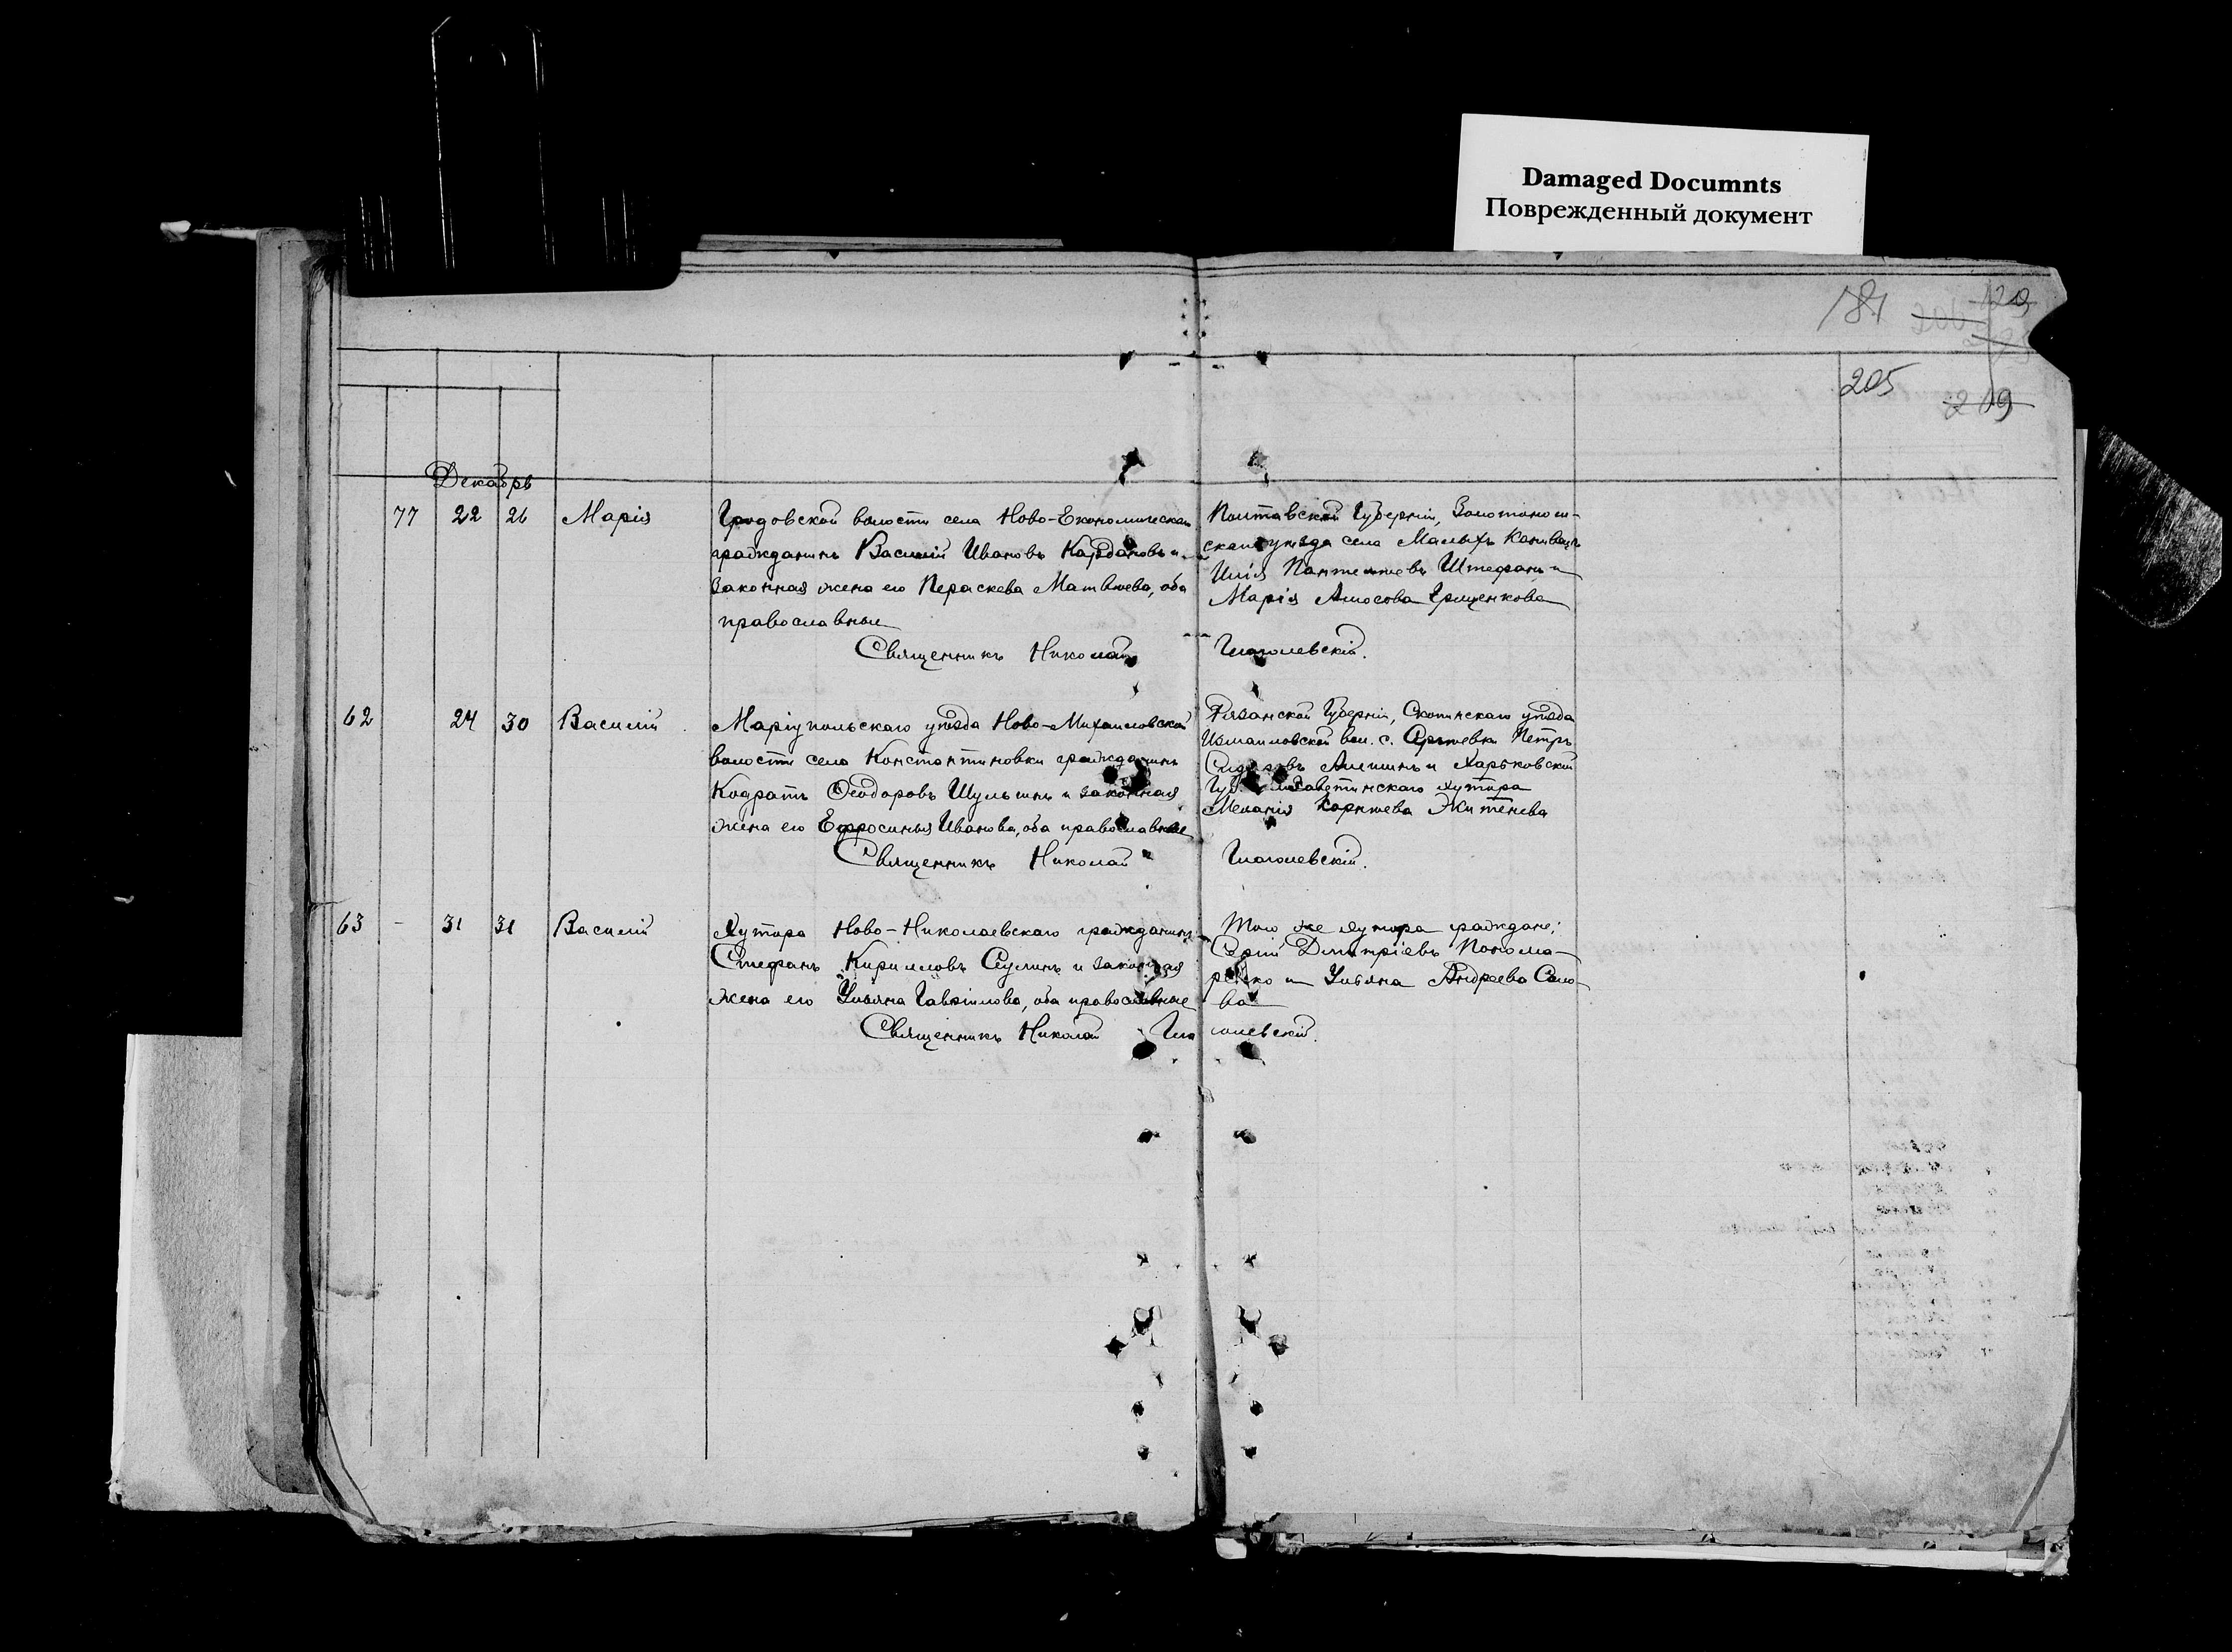 Damaged Documnts
Поврежденный документ
181
120
205
219
Декабрь
77 22 26 Марія
Гродовской волости села Ново-Економическаго
гражданинъ Василій Ивановъ Кардановъ и
законная жена его Пераскева Матвѣева, оба
православные
Священникъ Николай Глаголевскій.
Полтавской Губерніи, Золотонош-
скаго уѣзда села Малыхъ Канивецъ
Илія Пантелеевъ Штефанъ и
Марія Амосова Грищенкова
62 24 30 Василій
Маріупольскаго уѣзда Ново-Михайловской
волости села Константиновки гражданинъ
Кодратъ Ѳеодоровъ Шульгинъ и законная
жена его Ефросинья Иванова, оба православные
Священникъ Николай Глаголевскій.
Рязанской Губерніи, Скопинскаго уѣзда
Измаиловской вол. с. Петръ
Алешинъ и Харьковской
Губ. хутора
Меланія Корнѣева
63 - 31 31 Василій
Хутора Ново-Николаевскаго гражданинъ
Стефанъ Кирилловъ Сулинъ и законная
жена его Ульяна Гавріилова, оба православные
Священникъ Николай Глаголевскій.
Того же хутора граждане:
Сергій Димитріевъ Понома-
ренко и Ульяна Андреева Сало-
ва